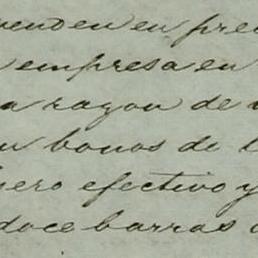 venden en pre
empresa en
a razon de
bonos de l
ero efectivo y
doce barras